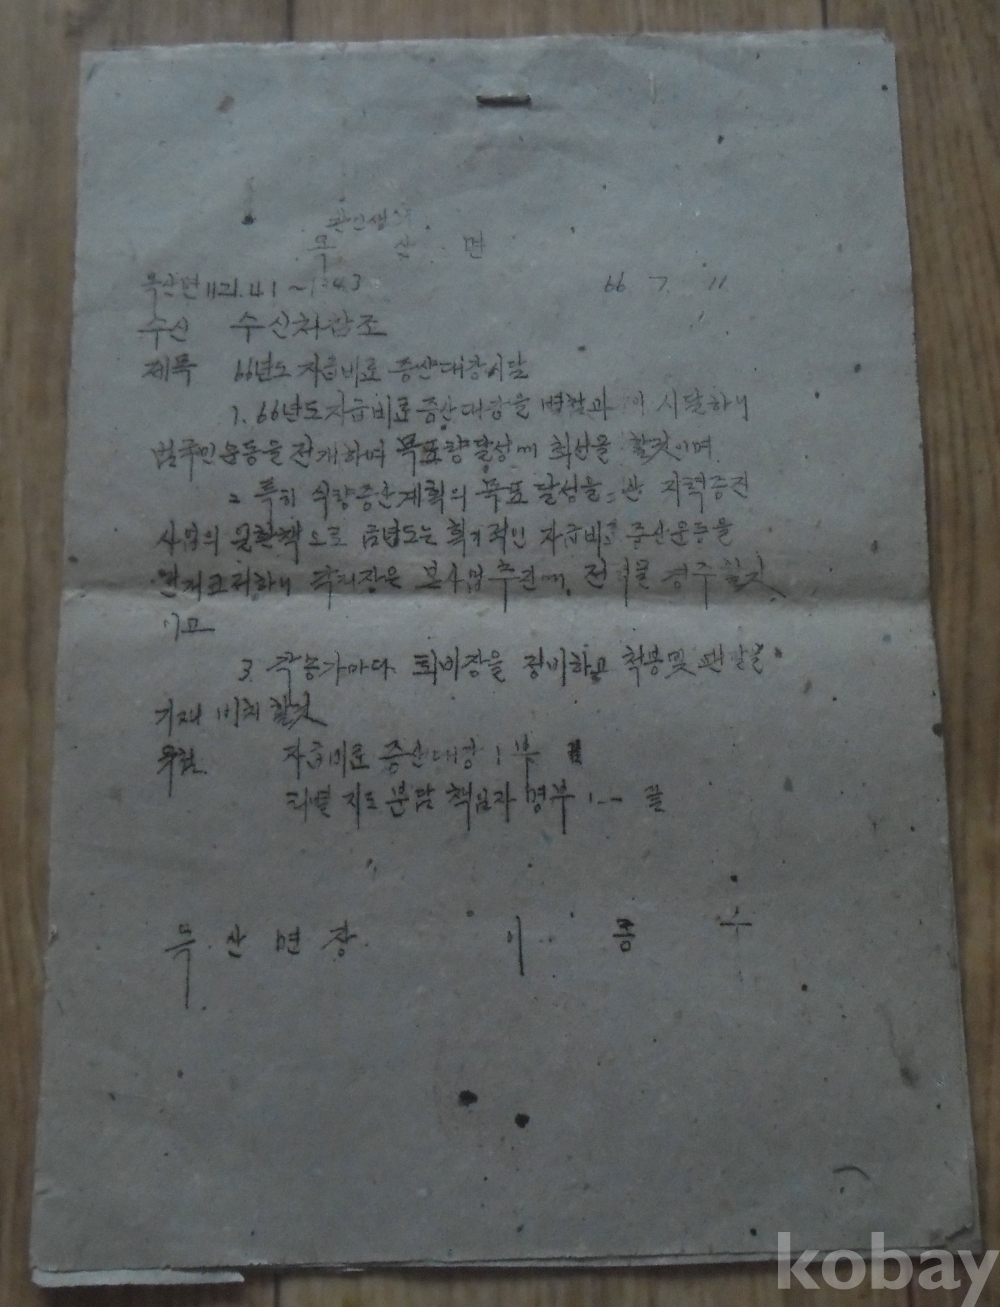 관인생략
옥 산 면
옥산면 1121.41 ~ 1243 66 7. 11
수신 수신처참조
제목 66년도 자급비료 증산대장시달
1. 66년도 자급비료 증산대장을 별첨과 이 시달하니
범국민운동을 전개하여 목표량달성에 최선을 할것이며
2 특히 식량증산계획의 목표달성을 한 지력증진
사업의 일환책으로 금년도는 획기적인 자급비료 증산운동을
본사업추진에, 전력을 경주할것
이고
3. 각농가마다 퇴비장을 정비하고 척봉및 팬말을
기재 비치할것
유첨. 자급비료 증산대장 1부
리별 지도분담 책임자 명부 1 - 끝
옥 산 면 장 이 종 수
kobay